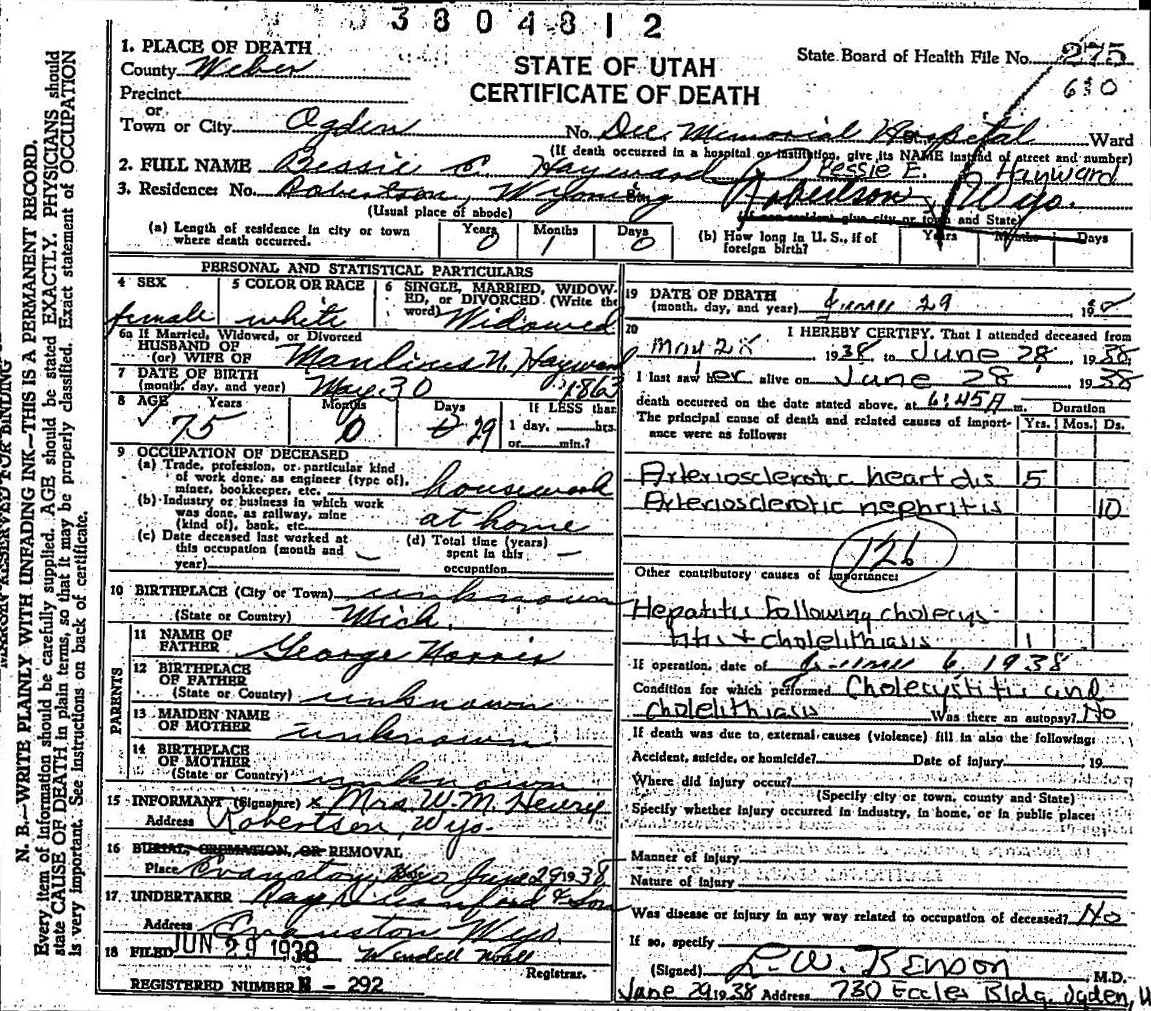 3804812
1. PLACE OF DEATH
County Weber
Precinct
or
Town or City Ogden No. Dee Memorial Hospital Ward
STATE OF UTAH
CERTIFICATE OF DEATH
State Board of Health File No. 275
630
(If death occurred in a hospital or institution, give its NAME instead of street and number)
2. FULL NAME Bessie E. Hayward Bessie E. Hayward
3. Residence: No. Robertson, Wyoming Robertson, Wyo.
(Usual place of abode) (If non-resident give city or town and State)
(a) Length of residence in city or town where death occurred. Years 0 Months 1 Days 0
(b) How long in U. S., if of foreign birth? Years Months Days
PERSONAL AND STATISTICAL PARTICULARS
4 SEX female
5 COLOR OR RACE white
6 SINGLE, MARRIED, WIDOWED, or DIVORCED. (Write the word) Widowed
6a If Married, Widowed, or Divorced
HUSBAND OF
(or) WIFE OF Manlius N. Hayward
7 DATE OF BIRTH
(month, day, and year) May 30 1863
8 AGE Years 75 Months 0 Days 29 If LESS than 1 day, hrs. or min.?
9 OCCUPATION OF DECEASED
(a) Trade, profession, or particular kind of work done, as engineer (type of), miner, bookkeeper, etc. housework
(b) Industry or business in which work was done, as railway, mine (kind of), bank, etc. at home
(c) Date deceased last worked at this occupation (month and year) —
(d) Total time (years) spent in this occupation —
10 BIRTHPLACE (City or Town) unknown
(State or Country) Mich.
PARENTS
11 NAME OF FATHER George Norris
12 BIRTHPLACE OF FATHER
(State or Country) unknown
13 MAIDEN NAME OF MOTHER unknown
14 BIRTHPLACE OF MOTHER
(State or Country) unknown
15 INFORMANT (Signature) x Mrs. W. M. Henry
Address Robertson, Wyo.
16 BURIAL, CREMATION, OR REMOVAL
Place Evanston Wyo June 29 1938
17 UNDERTAKER Ray & Son
Address Evanston Wyo.
18 FILED JUN 29 1938 Wendell
Registrar.
REGISTERED NUMBER - 292
19 DATE OF DEATH
(month, day, and year) June 29 19
20 I HEREBY CERTIFY, That I attended deceased from
May 28 1938 to June 28 1938
I last saw her alive on June 28 1938
death occurred on the date stated above, at 6:45A m.
Duration
Yrs. Mos. Ds.
The principal cause of death and related causes of importance were as follows:
Arteriosclerotic heart dis 5
Arteriosclerotic nephritis 10
126
Other contributory causes of importance:
Hepatitis following cholecystitis + cholelithiasis 1
If operation, date of June 6, 1938
Condition for which performed Cholecystitis and
cholelithiasis Was there an autopsy? No
If death was due to external causes (violence) fill in also the following:
Accident, suicide, or homicide? Date of injury 19
Where did injury occur?
(Specify city or town, county and State)
Specify whether injury occurred in industry, in home, or in public place:
Manner of injury
Nature of injury
Was disease or injury in any way related to occupation of deceased? No
If so, specify
(Signed) L. W. Benson M.D.
June 29 1938 Address 730 Eccles Bldg. Ogden, U
MARGIN RESERVED FOR BINDING
N. B.—WRITE PLAINLY WITH UNFADING INK—THIS IS A PERMANENT RECORD.
Every item of information should be carefully supplied. AGE should be stated EXACTLY. PHYSICIANS should
state CAUSE OF DEATH in plain terms, so that it may be properly classified. Exact statement of OCCUPATION
is very important. See instructions on back of certificate.